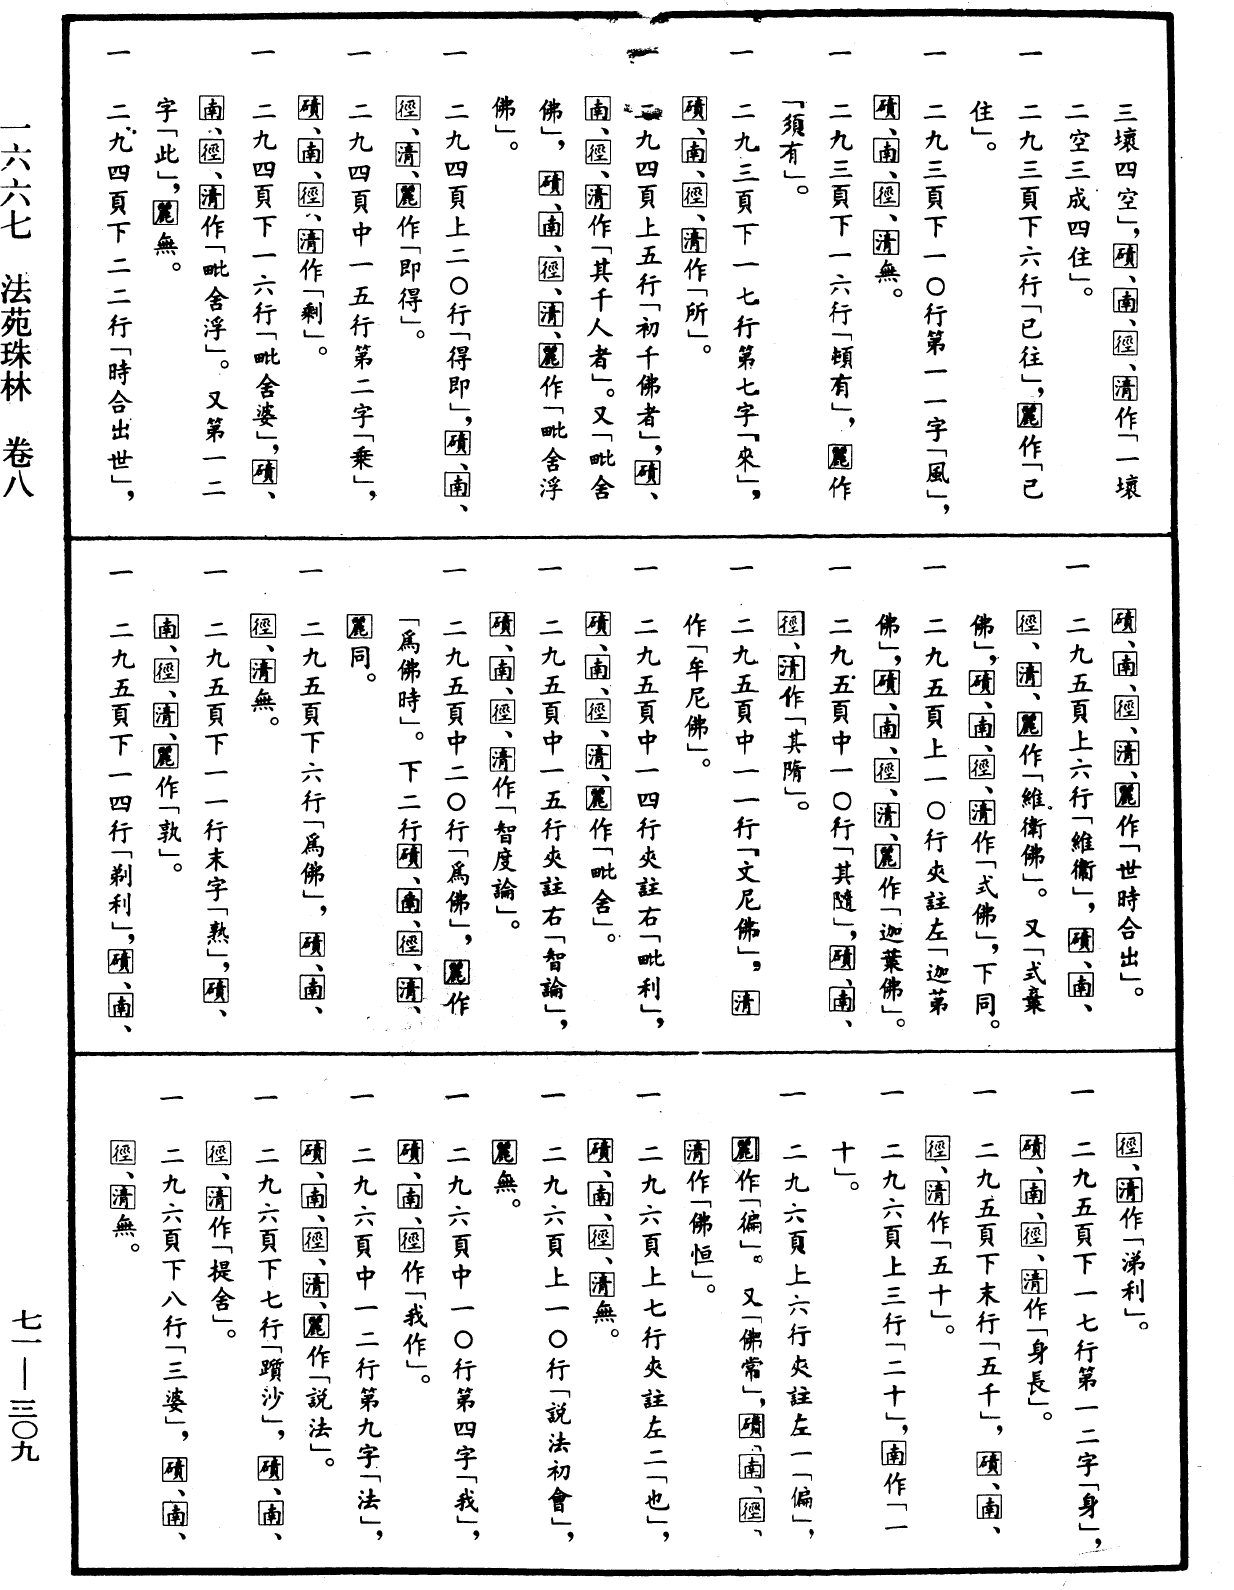 三壞四空」，磧、南、徑、清作「一壞
二空三成四住」。
一　二九三頁下六行「已往」，麗作「已
住」。
一　二九三頁下一〇行第一一字「風」，
磧、南、徑、清無。
一　二九三頁下一六行「頓有」，麗作
「須有」。
一　二九三頁下一七行第七字「來」，
磧、南、徑、清作「所」。
一　二九四頁上五行「初千佛者」，磧、
南、徑、清作「其千人者」。又「毗舍
佛」，磧、南、徑、清、麗作「毗舍浮
佛」。
一　二九四頁上二〇行「得即」，磧、南、
徑、清、麗作「即得」。
一　二九四頁中一五行第二字「乗」，
磧、南、徑、清作「剩」。
一　二九四頁下一六行「毗舍婆」，磧、
南、徑、清作「毗舍浮」。又第一二
字「此」，麗無。
一　二九四頁下二二行「時合出世」，
磧、南、徑、清、麗作「世時合出」。
一　二九五頁上六行「維衞」，磧、南、
徑、清、麗作「維衛佛」。又「式棄
佛」，磧、南、徑、清作「式佛」，下同。
一　二九五頁上一〇行夾註左「迦第
佛」，磧、南、徑、清、麗作「迦葉佛」。
一　二九五頁中一〇行「其隨」，磧、南、
徑、清作「其隋」。
一　二九五頁中一一行「文尼佛」，清
作「牟尼佛」。
一　二九五頁中一四行夾註右「毗利」，
磧、南、徑、清、麗作「毗舍」。
一　二九五頁中一五行夾註右「智論」，
磧、南、徑、清作「智度論」。
一　二九五頁中二〇行「爲佛」，麗作
「爲佛時」。下二行磧、南、徑、清、
麗同。
一　二九五頁下六行「爲佛」，磧、南、
徑、清無。
一　二九五頁下一一行末字「熟」，磧、
南、徑、清、麗作「孰」。
一　二九五頁下一四行「剃利」，磧、南、
徑、清作「涕利」。
一　二九五頁下一七行第一二字「身」，
磧、南、徑、清作「身長」。
一　二九五頁下末行「五千」，磧、南、
徑、清作「五十」。
一　二九六頁上三行「二十」，南作「一
十」。
一　二九六頁上六行夾註左一「偏」，
麗作「徧」。又「佛常」，磧、南、徑、
清作「佛恒」。
一　二九六頁上七行夾註左二「也」，
磧、南、徑、清無。
一　二九六頁上一〇行「説法初會」，
麗無。
一　二九六頁中一〇行第四字「我」，
磧、南、徑作「我作」。
一　二九六頁中一二行第九字「法」，
磧、南、徑、清、麗作「説法」。
一　二九六頁下七行「躓沙」，磧、南、
徑、清作「提舍」。
一　二九六頁下八行「三婆」，磧、南、
徑、清無。
一六六七　法苑珠林　卷八
七一—三〇九